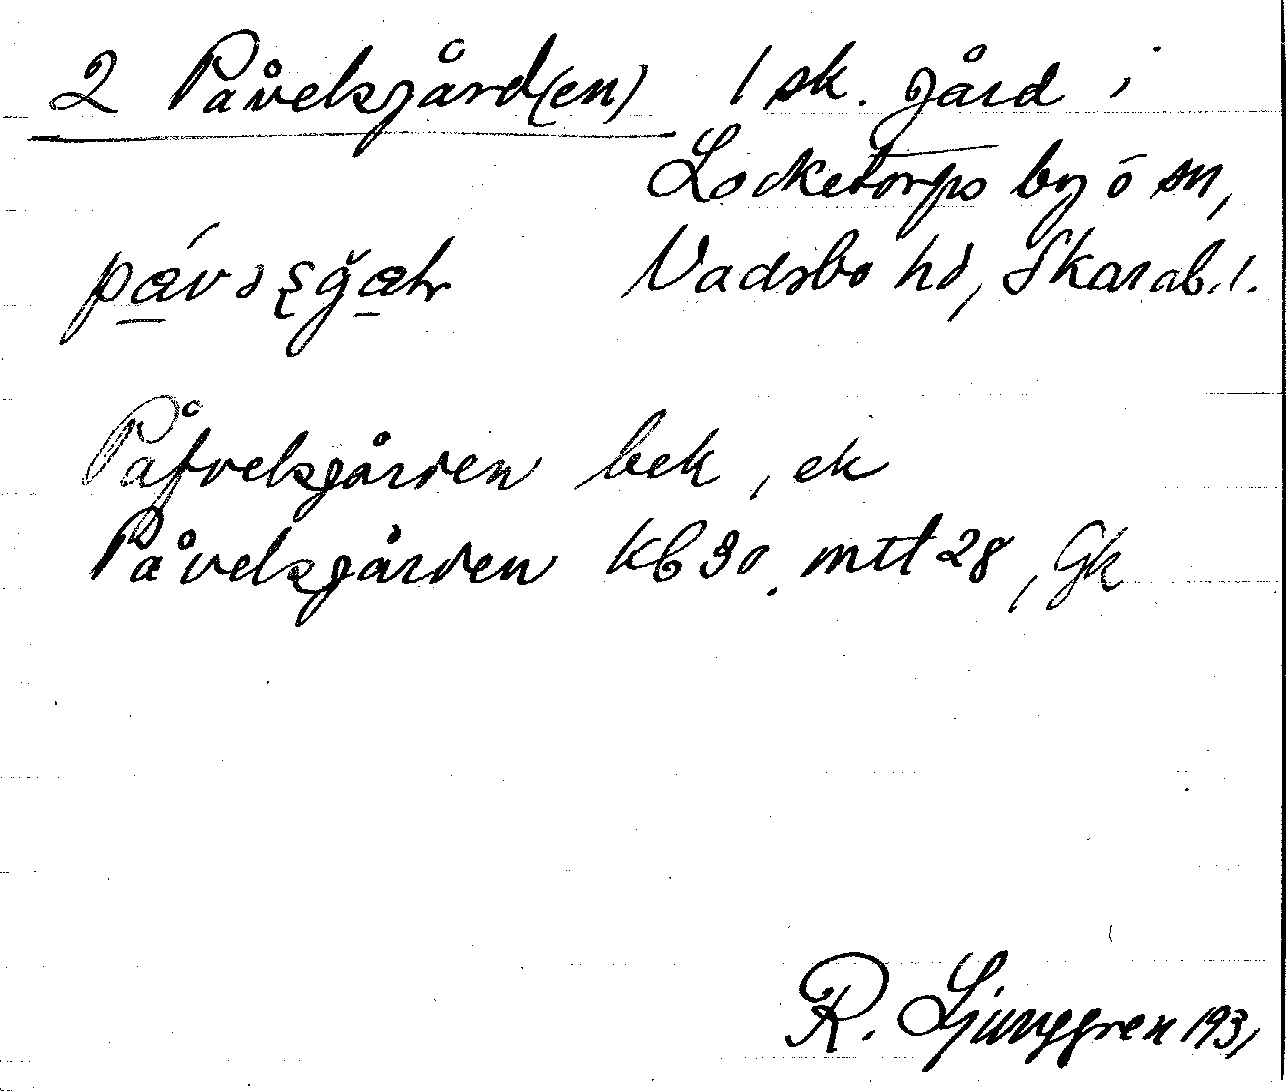 2 Påvelsgård(en) 1 sk. gård i
Locketorps by o sn,
Vadsbo hd, Skarab. l.
Påfvelsgården bek, ek
Påvelsgården kb 30. mtl 28, Gk
R. Ljunggren 1931